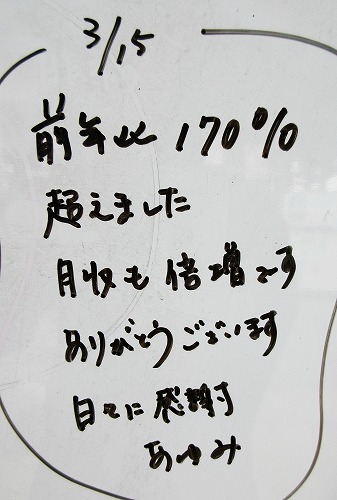 3/15
前年比170%
超えました
月収も倍増です
ありがとうございます
日々に感謝
あゆみ